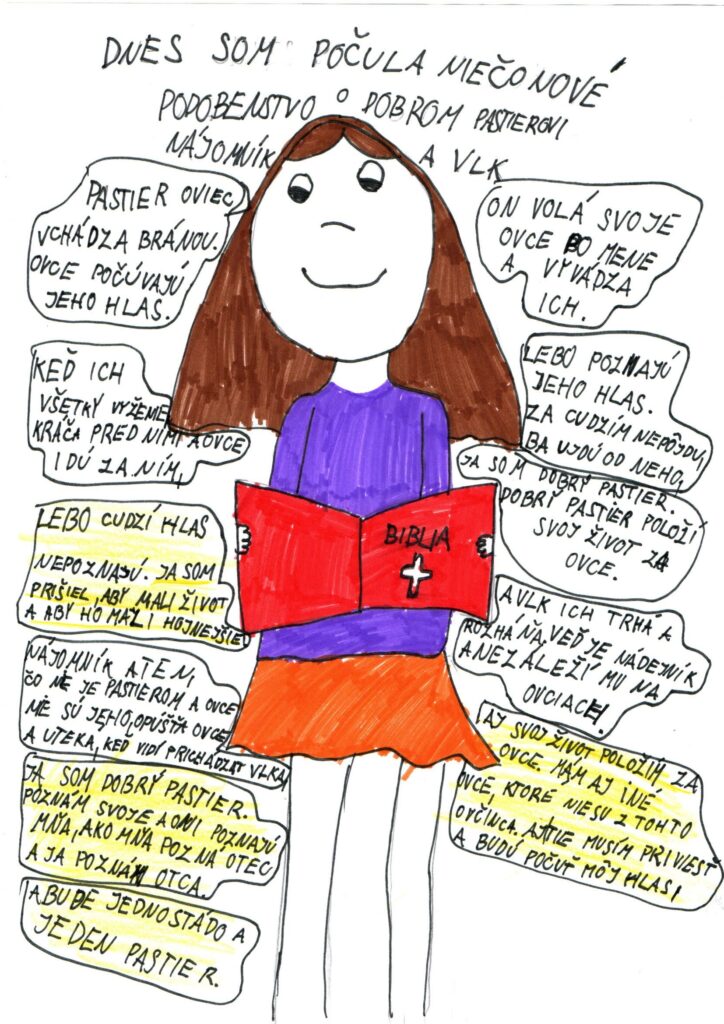 DNES SOM POČULA NIEČO NOVÉ
PODOBENSTVO O DOBROM PASTIEROVI
NÁJOMNÍK A VLK
PASTIER OVIEC
VCHÁDZA BRÁNOU.
OVCE POČÚVAJÚ
JEHO HLAS.
ON VOLÁ SVOJE
OVCE PO MENE
A VYVÁDZA
ICH.
KEĎ ICH
VŠETKY VYŽEME
KRÁČA PRED NIMI A OVCE
IDÚ ZA NÍM,
LEBO POZNAJÚ
JEHO HLAS.
ZA CUDZÍM NEPÔJDU,
BA UJDÚ OD NEHO,
LEBO CUDZÍ HLAS
NEPOZNAJÚ. JA SOM
PRIŠIEL, ABY MALI ŽIVOT
A ABY HO MALI HOJNEJŠIE
JA SOM DOBRÝ PASTIER.
DOBRÝ PASTIER POLOŽÍ
SVOJ ŽIVOT ZA
OVCE.
BIBLIA
NÁJOMNÍK A TEN,
ČO NIE JE PASTIEROM A OVCE
NIE SÚ JEHO, OPÚŠŤA OVCE
A UTEKÁ, KEĎ VIDÍ PRICHÁDZAŤ VLKA
A VLK ICH TRHÁ A
ROZHÁŇA, VEĎ JE NÁDEJNÍK
A NEZÁLEŽÍ MU NA
OVCIACH.
JA SOM DOBRÝ PASTIER.
POZNÁM SVOJE A ONI POZNAJÚ
MŇA, AKO MŇA POZNÁ OTEC
A JA POZNÁM OTCA.
AJ SVOJ ŽIVOT POLOŽÍM ZA
OVCE. MÁM AJ INÉ
OVCE, KTORÉ NIESU Z TOHTO
OVČINCA. AJ TIE MUSÍM PRIVIESŤ
A BUDÚ POČUŤ MÔJ HLAS I
A BUDE JEDNO STÁDO A
JEDEN PASTIER.